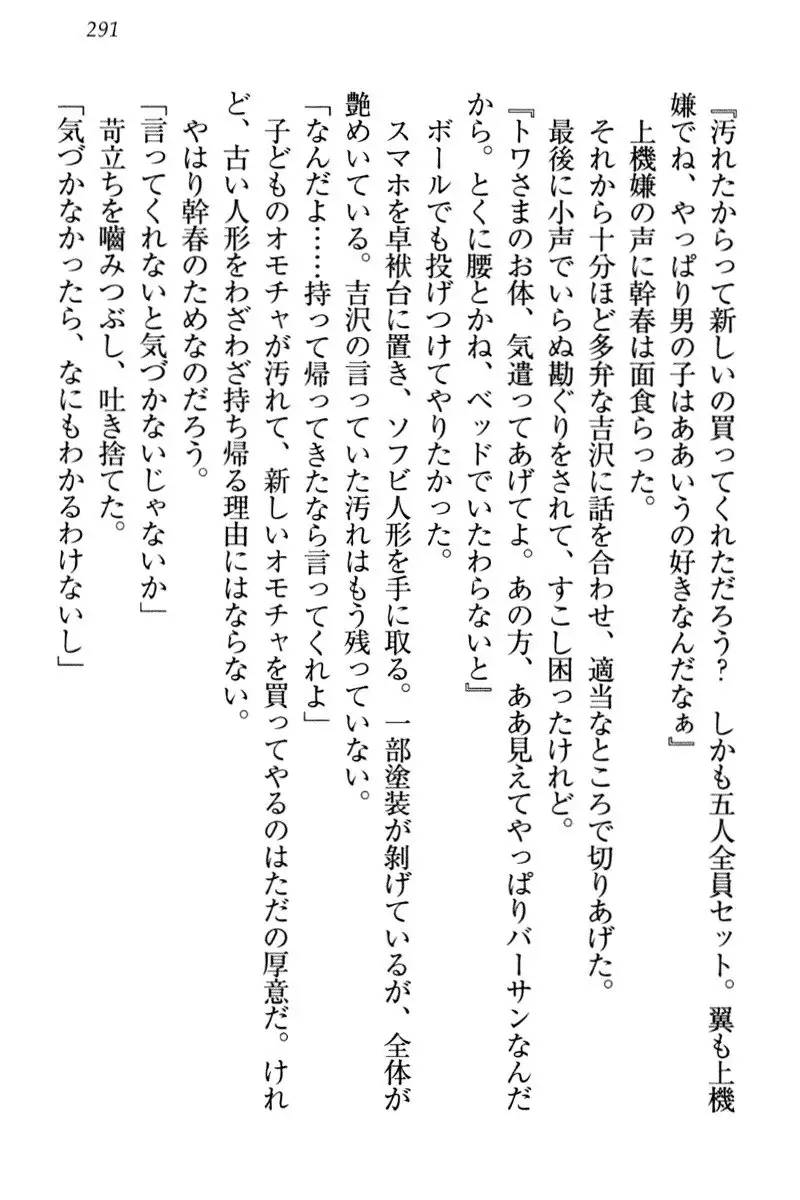 291
『汚れたからって新しいの買ってくれただろう？　しかも五人全員セット。翼も上機
嫌でね、やっぱり男の子はああいうの好きなんだなぁ』
　上機嫌の声に幹春は面食らった。
　それから十分ほど多弁な吉沢に話を合わせ、適当なところで切りあげた。
　最後に小声でいらぬ勘ぐりをされて、すこし困ったけれど。
『トワさまのお体、気遣ってあげてよ。あの方、ああ見えてやっぱりバーサンなんだ
から。とくに腰とかね、ベッドでいたわらないと』
　ボールでも投げつけてやりたかった。
　スマホを卓袱台に置き、ソフビ人形を手に取る。一部塗装が剥げているが、全体が
艶めいている。吉沢の言っていた汚れはもう残っていない。
「なんだよ……持って帰ってきたなら言ってくれよ」
　子どものオモチャが汚れて、新しいオモチャを買ってやるのはただの厚意だ。けれ
ど、古い人形をわざわざ持ち帰る理由にはならない。
　やはり幹春のためなのだろう。
「言ってくれないと気づかないじゃないか」
　苛立ちを嚙みつぶし、吐き捨てた。
「気づかなかったら、なにもわかるわけないし」